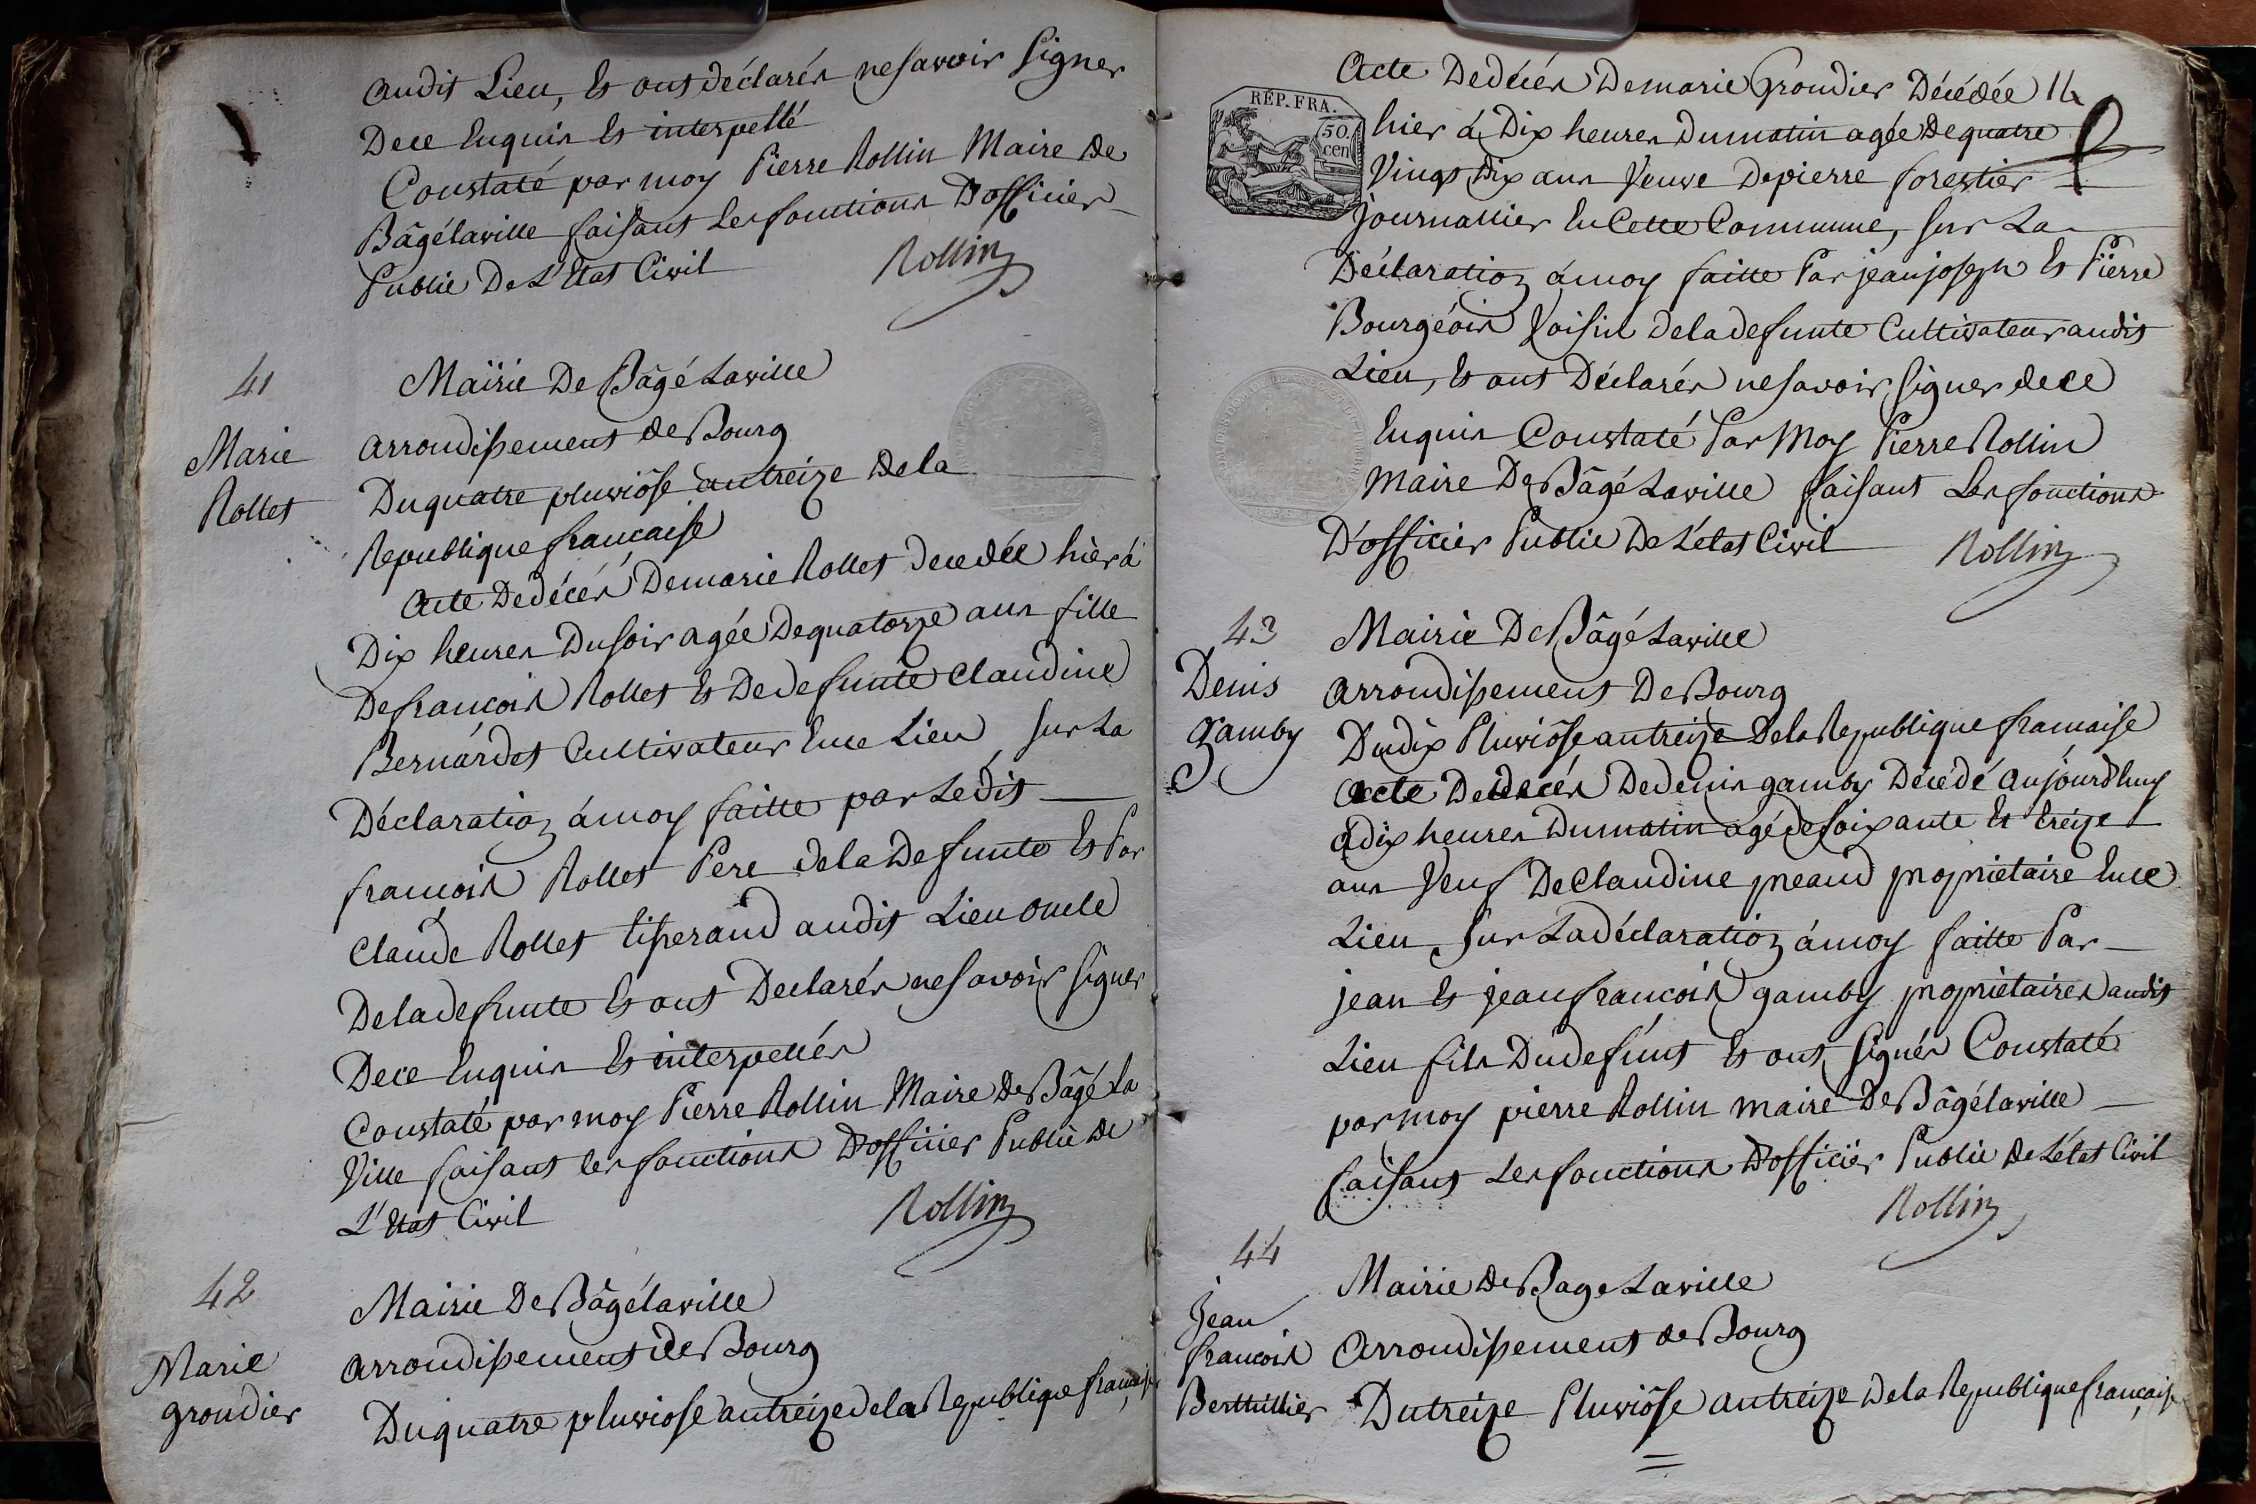 audit Lieu, Et ont déclarés ne savoir signer
De ce Enquis Et interpellé
Constaté par moy Pierre Rollin Maire de
Bâgélaville faisant Les fonctions D'officier
Public De L'Etat Civil
Rollin
41
Marie
Rollet
Mairie De Bâgé Laville
arrondissement de Bourg
Du quatre pluviôse an treize De la
Republique francaise
Acte De décés De marie Rollet decedée hier à
Dix heures Du soir agée De quatorze ans fille
De francois Rollet Et De defunte Claudine
Bernardet Cultivateur En ce Lieu sur La
Déclaration à moy faitte par Ledit
francois Rollet Pere de la Defunte Et Par
Claude Rollet tisserand audit Lieu oncle
De la defunte Et ont Declarés ne savoir signer
De ce Enquis Et interpellés
Constaté par moy Pierre Rollin Maire De Bâgé La
Ville faisant les fonctions D'officier Public De
L'Etat Civil
Rollin
42
Marie
grondier
Mairie De Bâgélaville
arrondissement de Bourg
Du quatre pluviose an treize de la Republique francaise
RÉP. FRA.
50.
cen
Acte De décés De marie Grondier Décédée
hier à Dix heures Du matin agée De quatre
Vingt Dix ans Veuve De pierre forestier
Journallier En Cette Commune, sur La
Déclaration à moy faitte Par jean joseph Et Pierre
Bourgéois Voisin de la defunte Cultivateur audit
Lieu, Et ont Déclarés ne savoir signer de ce
Enquis Constaté Par Moy Pierre Rollin
Maire De Bâgé Laville faisant Les fonctions
D'officier Public De L'état Civil
Rollin
43
Denis
gamby
Mairie De Bâgé Laville
arrondissement De Bourg
Du dix Pluviôse an treize De la Republique francaise
Acte De décés De denis gamby Décédé aujourd'huy
à dix heures Du matin agé de soixante Et treize
ans Veuf De Claudine preaud propriétaire En ce
Lieu, sur La déclaration à moy faitte Par
jean Et jean francois gamby propriétaires audit
Lieu fils Du defunt Et ont signés Constaté
par moy pierre Rollin maire De Bâgélaville
faisant Les fonctions D'officier Public de L'état Civil
Rollin
44
Jean
francois
Berthillier
Mairie De Bage Laville
Arrondissement de Bourg
Du treize Pluviôse an treize De la Republique francaise